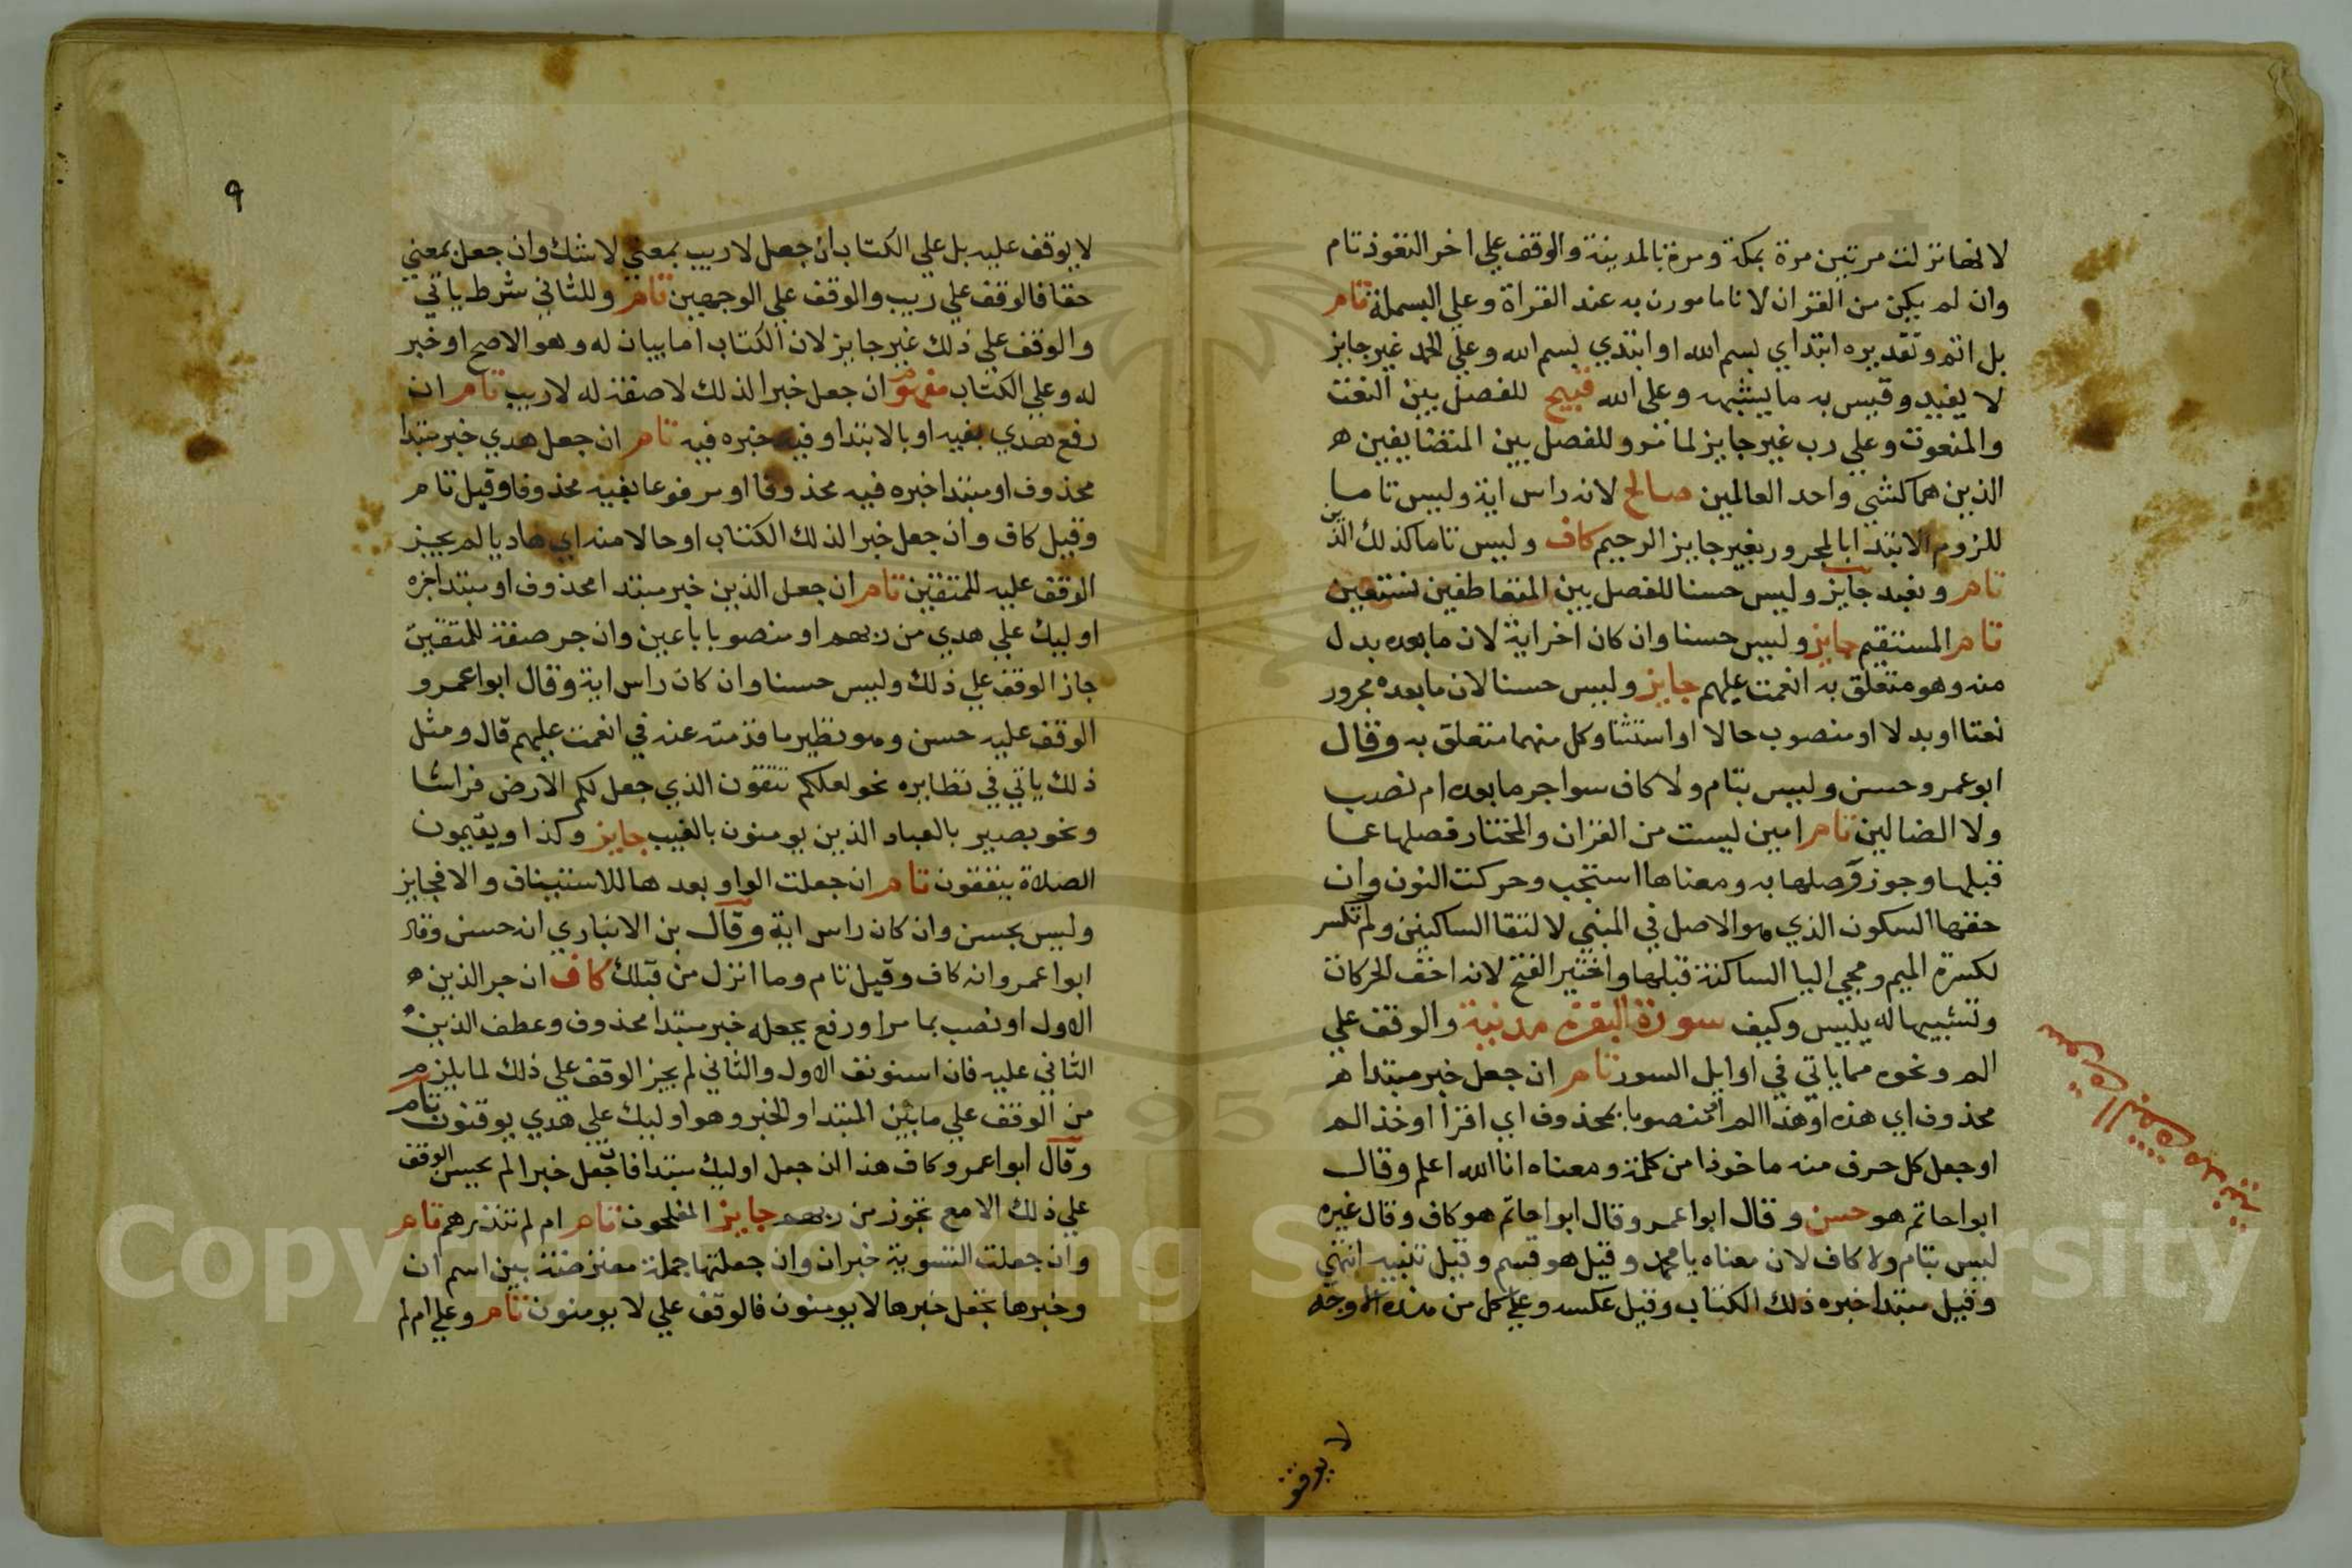 لانها نزلت مرتين مرة بمكة ومرة بالمدينة والوقف علي اخر التعوذ تام
وان لم يكن من القران لانا مامورن به عند القراة وعلي البسملة تام
بل اتم وتقديره ابتداي بسم الله او ابتدي بسم الله وعلي الحمد غير جايز
لا يفيد وقيس به ما يشبهه وعلي الله قبيح للفصل بين النعت
والمنعوت وعلي رب غير جايز لما مر وللفصل بين المتضايفين ه
الذين هما كشي واحد العالمين صالح لانه راس اية وليس تاما
للزوم الابتدا بالمجرور بغير جايز الرحيم كاف وليس تاما كذلك الدين
تام ونعبد جايز وليس حسنا للفصل بين المتعاطفين نستعين
تام المستقيم جايز وليس حسنا وان كان اخر اية لان ما بعده بدل
منه وهو متعلق به انعمت عليهم جايز وليس حسنا لان ما بعده مجرور
نعتا او بدلا او منصوب حالا او استثنا وكل منهما متعلق به وقال
ابو عمرو حسن وليس بتام ولا كاف سوا جر ما بعده ام نصب
ولا الضالين تام امين ليست من القران والمختار فصلها عما
قبلها وجوز وصلها به ومعناها استجب وحركت النون وان
حقها السكون الذي هو الاصل في المبني لالتقا الساكنين ولم تكسر
لكسرة الميم ومجي اليا الساكنة قبلها واختير الفتح لانه اخف الحركات
وتشبيها له بليس وكيف سورة البقرة مدنية والوقف علي
الم ونحوه مما ياتي في اوايل السور تام ان جعل خبر مبتدا ه
محذوف اي هذه او هذا الم او منصوبا بمحذوف اي اقرا او خذ الم
او جعل كل حرف منه ماخوذا من كلمة ومعناه انا الله اعلم وقال
ابوا حاتم هو حسن وقال ابوا عمرو وقال ابوا حاتم هو كاف وقال غيره
ليس بتام ولا كاف لان معناه يا محمد وقيل هو قسم وقيل تنبيه انتهي
وقيل مبتدا خبره ذلك الكتاب وقيل عكسه وعلي كل من هذه الاوجه
لا يوقف
٩
لا يوقف عليه بل علي الكتاب ان جعل لا ريب بمعني لا شك وان جعل بمعني
حقا فالوقف علي ريب والوقف علي الوجهين تام وللثاني شرط ياتي
والوقف علي ذلك غير جايز لان الكتاب اما بيان له وهو الاصح او خبر
له وعلي الكتاب مفهوم ان جعل خبرا لذلك لا صفة له لا ريب تام ان
رفع هدي بفيه او بالابتدا وفيه خبره فيه تام ان جعل هدي خبر مبتدا
محذوف او مبتدا خبره فيه محذوفا او مرفوعا بفيه محذوفا وقيل تام
وقيل كاف وان جعل خبرا لذلك الكتاب او حالا منه اي هاديا لم يجز
الوقف عليه للمتقين تام ان جعل الذين خبر مبتدا محذوف او مبتدا خبره
اوليك علي هدي من ربهم او منصوبا باعين وان جر صفة للمتقين
جاز الوقف علي ذلك وليس حسنا وان كان راس اية وقال ابوا عمرو
الوقف عليه حسن وهو نظير ما قدمته عنه في انعمت عليهم قال ومثل
ذلك ياتي في نظايره نحو لعلكم تتقون الذي جعل لكم الارض فراشا
ونحو بصير بالعباد الذين يومنون بالغيب جايز وكذا ويقيمون
الصلاة ينفقون تام ان جعلت الواو بعدها للاستيناف والا فجايز
وليس بحسن وان كان راس اية وقال بن الانباري انه حسن وقال
ابوا عمرو انه كاف وقيل تام وما انزل من قبلك كاف ان جر الذين ه
الاول او نصب بما مر او رفع بجعله خبر مبتدا محذوف وعطف الذين
الثاني عليه فان استونف الاول والثاني لم يجز الوقف علي ذلك لما يلزم
من الوقف علي ما بين المبتدا والخبر وهو اوليك علي هدي يوقنون تام
وقال ابوا عمرو كاف هذا ان جعل اوليك مبتدا فان جعل خبرا لم يحسن الوقف
علي ذلك الا مع تجوز من ربهم جايز المفلحون تام ام لم تنذرهم تام
وان جعلت التسوية خبر ان وان جعلتها جملة معترضة بين اسم ان
وخبرها بجعل خبرها لا يومنون فالوقف علي لا يومنون تام وعلي ام لم
Copyright © King Saud University
1957